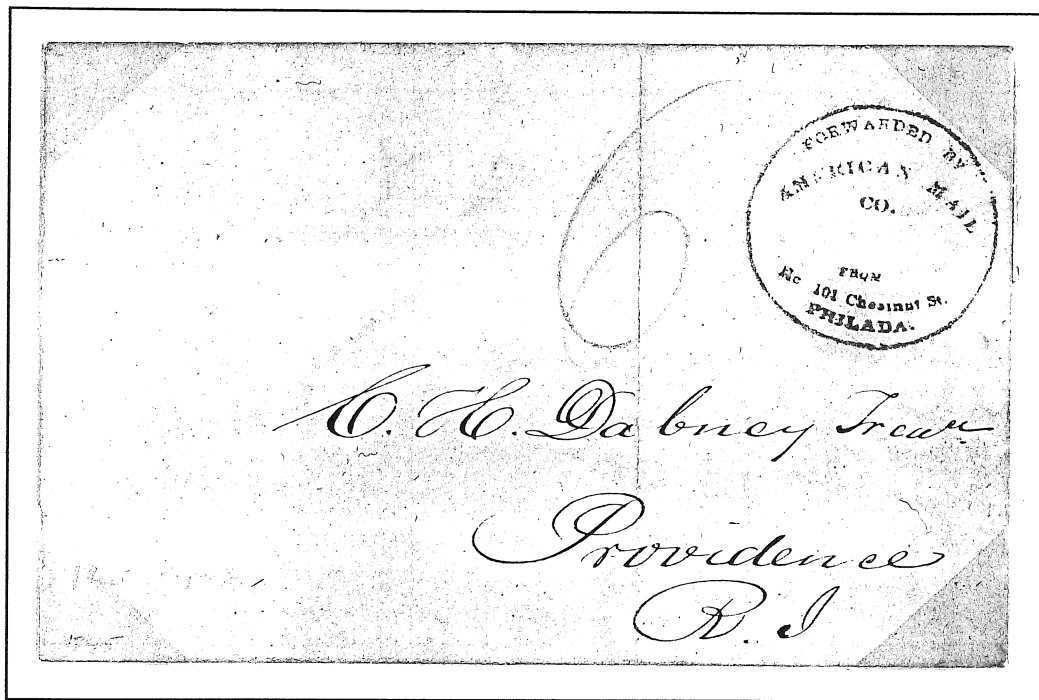 6
FORWARDED BY
AMERICAN MAIL
CO.
FROM
No 101 Chesnut St.
PHILADA.
C. H. Dabney Treasr
Providence
R. I